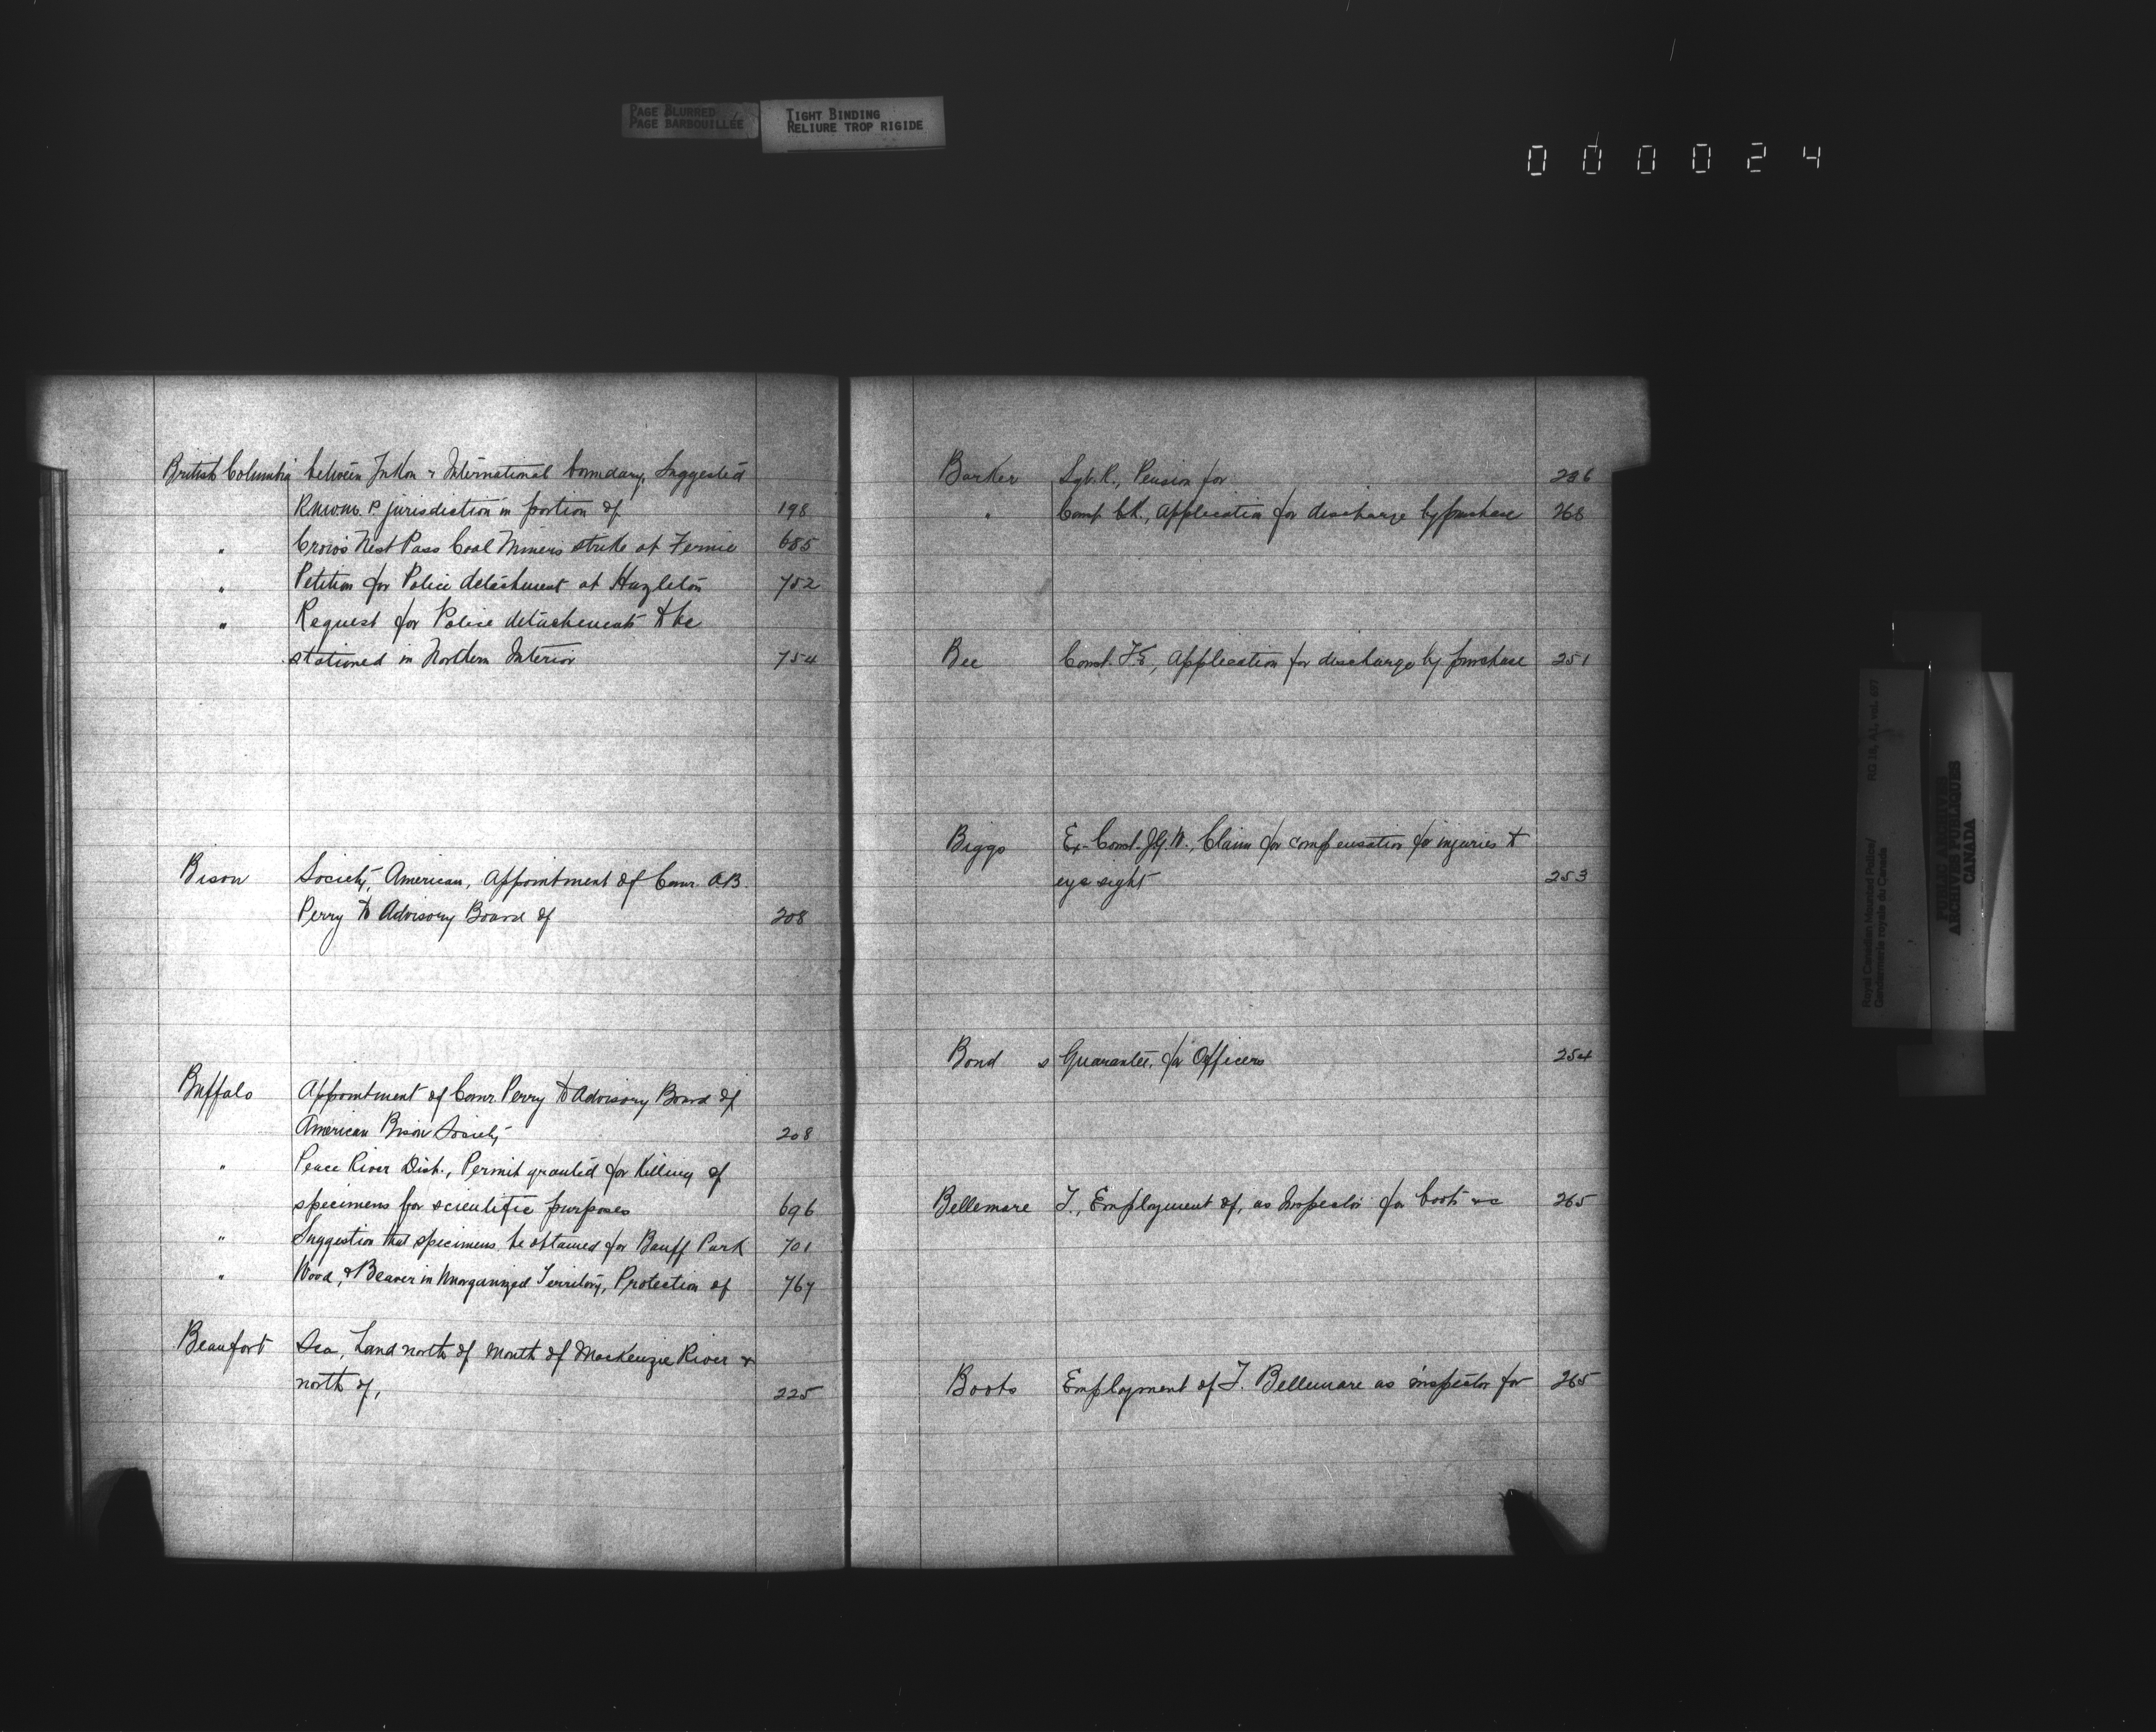 PAGE BLURRED
PAGE BARBOUILLÉE
TIGHT BINDING
RELIURE TROP RIGIDE
000024
British Columbia between Yukon & International boundary, Suggested
R.N.W.M.P. jurisdiction in portion of 198
" Crow's Nest Pass Coal Miners strike at Fernie 685
" Petition for Police detachment at Hazleton 752
" Request for Police detachments to be
stationed in Northern Interior 754
Bison Society, American, Appointment of Comr. A.B.
Perry to Advisory Board of 208
Buffalo Appointment of Comr. Perry to Advisory Board of
American Bison Society 208
" Peace River Dist., Permit granted for killing of
specimens for scientific purposes 696
" Suggestion that specimens be obtained for Banff Park 701
" Wood, & Beaver in Unorganized Territory, Protection of 767
Beaufort Sea, Land north of Mouth of MacKenzie River &
north of, 225
Barker Sgt. R., Pension for 236
" Const. Ch., Application for discharge by purchase 268
Bee Const. , Application for discharge by purchase 251
Biggs Ex-Const. , Claim for compensation for injuries to
eye sight 253
Bond s Guarantee, for Officers 254
Bellemare T., Employment of, as Inspector for boots &c 265
Boots Employment of T. Bellemare as inspector for 265
Royal Canadian Mounted Police/
Gendarmerie royale du Canada
RG 18, A1, vol. 697
PUBLIC ARCHIVES
ARCHIVES PUBLIQUES
CANADA